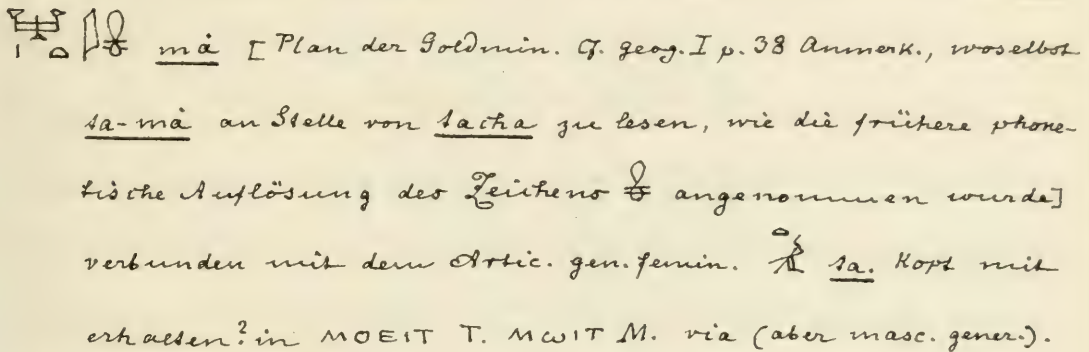 má [Plan der Goldmin. Cf. geog. I p. 38 Anmerk., woselbst
ta-má an Stelle von tacha zu lesen, wie die frühere phone-
tische Auflösung des Zeichens angenommen wurde]
verbunden mit dem Artic. gen. femin. ta. Kopt mit
erhalten? in ⲙⲟⲉⲓⲧ T. ⲙⲱⲓⲧ M. via (aber masc. gener.).